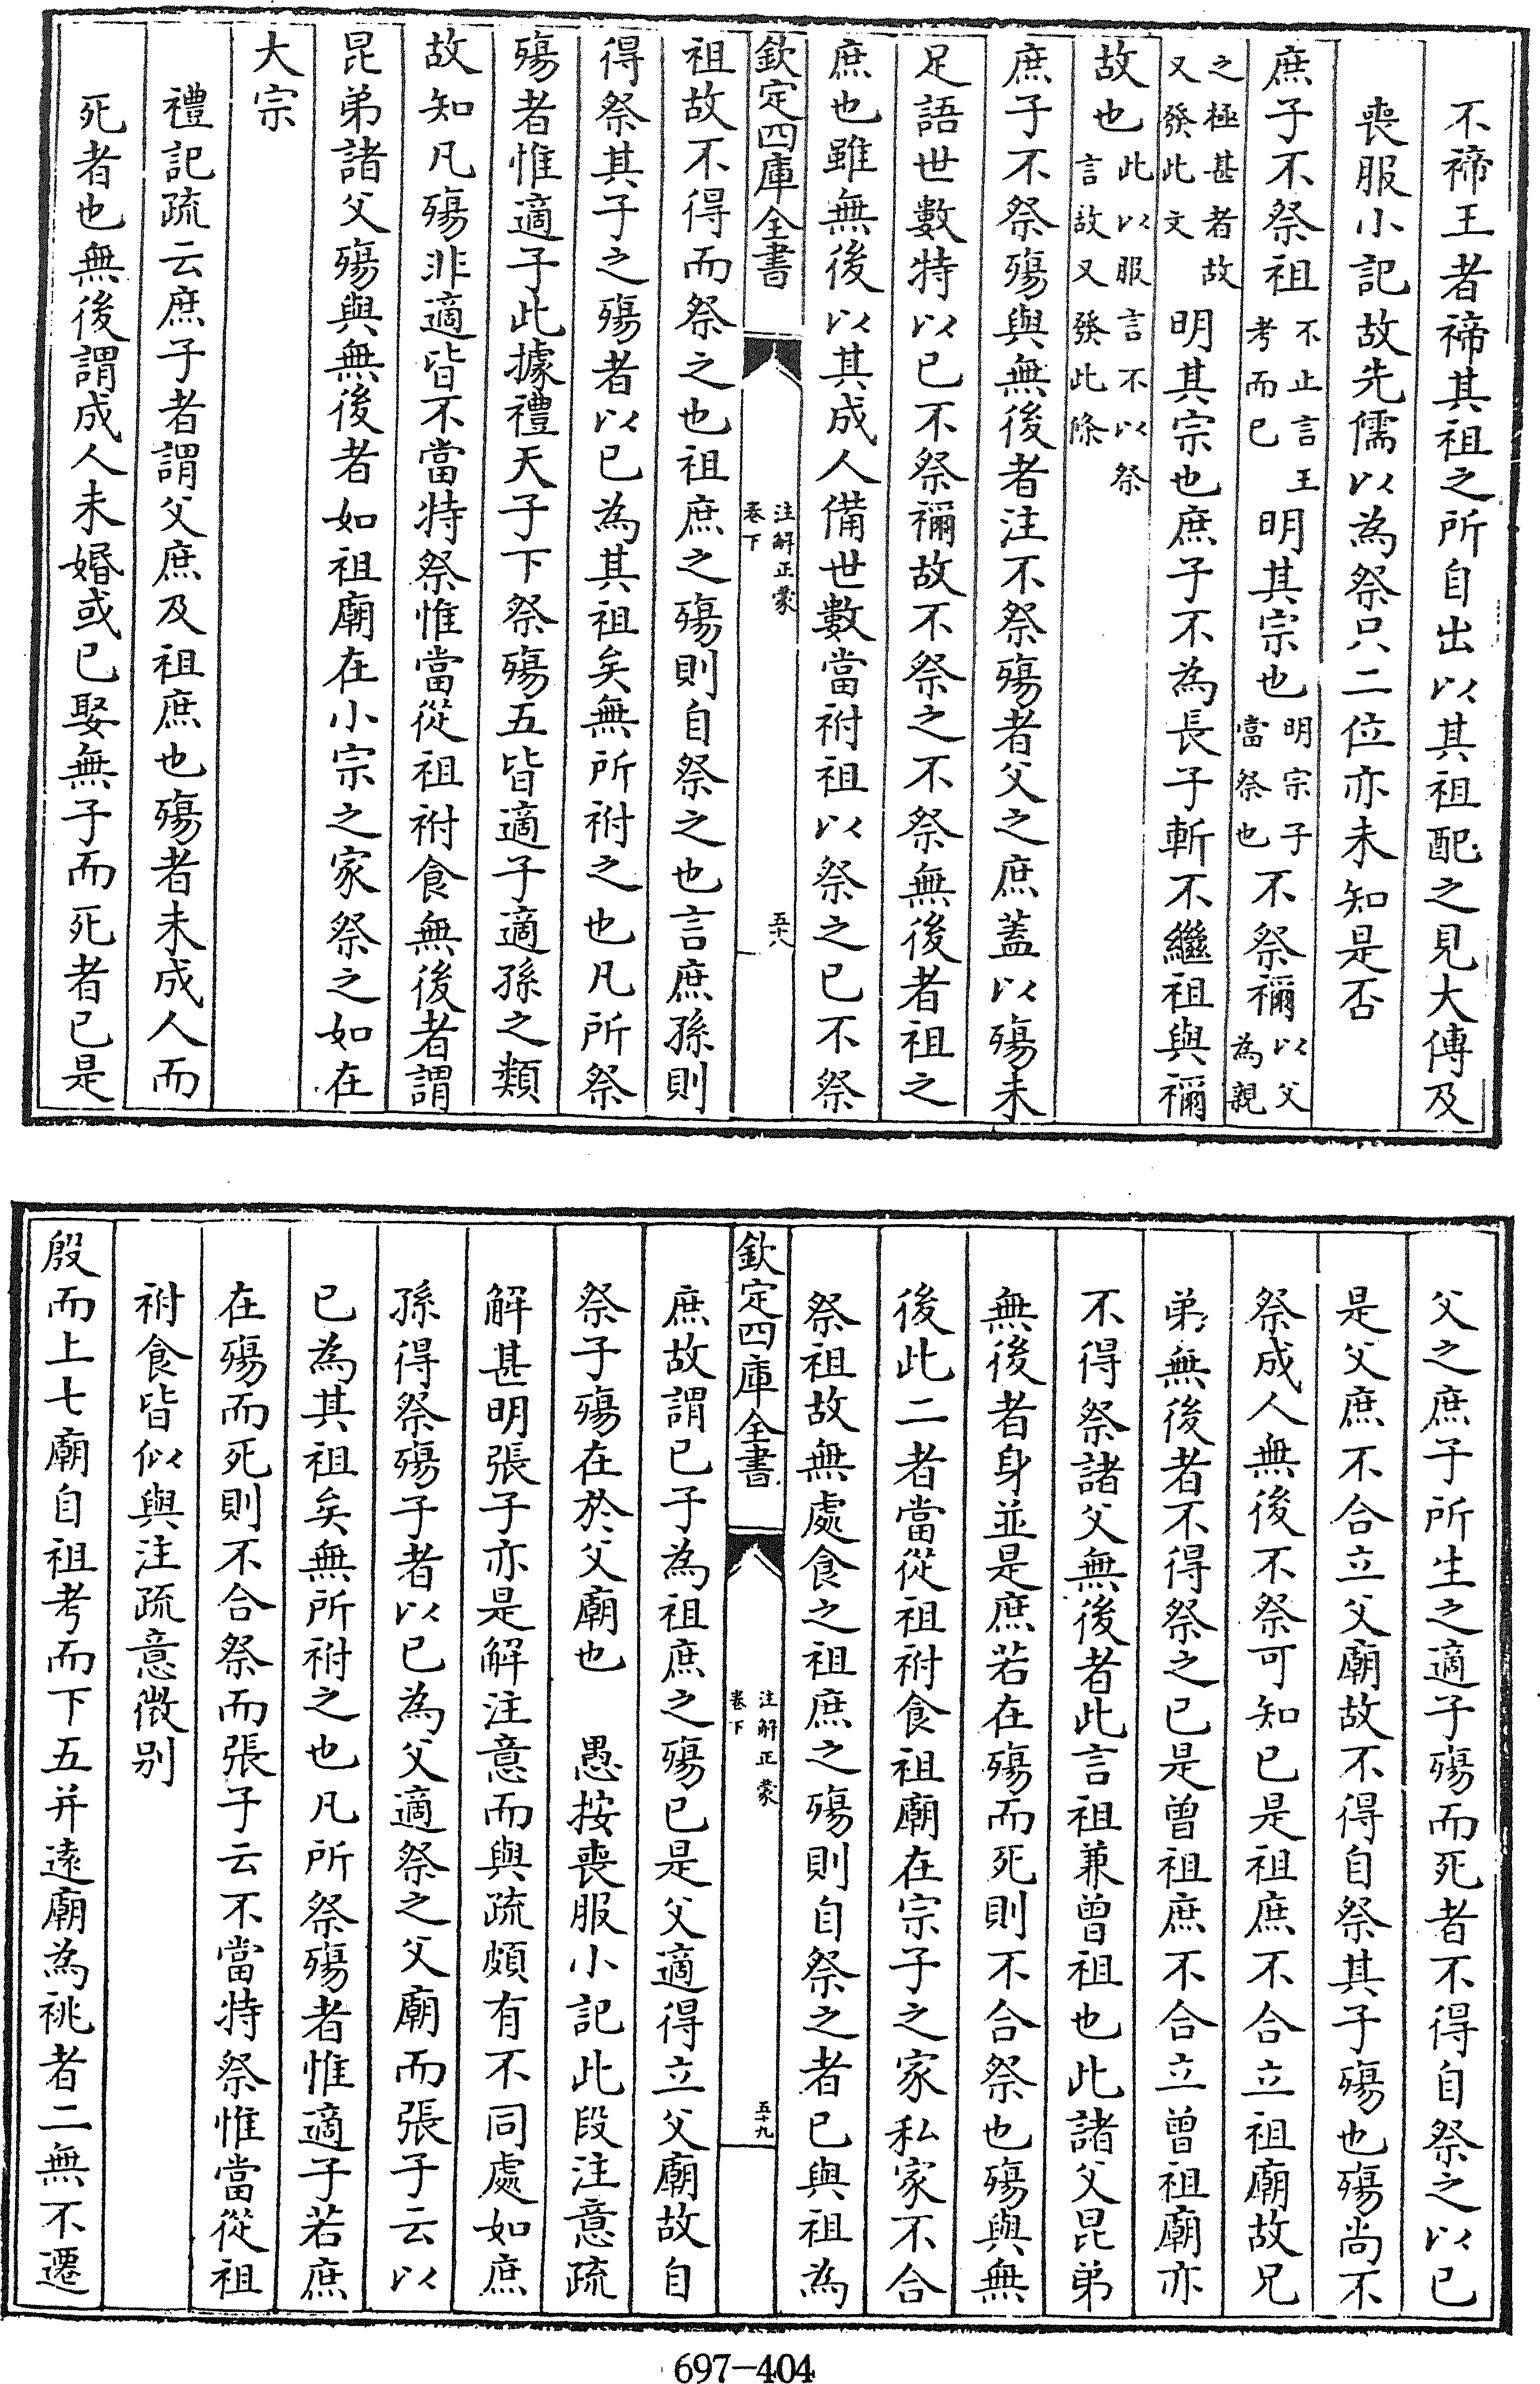 不禘王者禘其祖之所自出以其祖配之見大傳及
喪服小記故先儒以為祭只二位亦未知是否
庶子不祭祖不止言王考而已明其宗也明宗子當祭也不祭禰以父為親
之極甚者故又發此文明其宗也庶子不為長子斬不繼祖與禰
故也此以服言不以祭言故又發此條
庶子不祭殤與無後者注不祭殤者父之庶蓋以殤未
足語世數特以已不祭禰故不祭之不祭無後者祖之
庶也雖無後以其成人備世數當祔祖以祭之已不祭
欽定四庫全書 注解正蒙 卷下 五十八
祖故不得而祭之也祖庶之殤則自祭之也言庶孫則
得祭其子之殤者以已為其祖矣無所祔之也凡所祭
殤者惟適子此據禮天子下祭殤五皆適子適孫之類
故知凡殤非適皆不當特祭惟當從祖祔食無後者謂
昆弟諸父殤與無後者如祖廟在小宗之家祭之如在
大宗
禮記疏云庶子者謂父庶及祖庶也殤者未成人而
死者也無後謂成人未婚或已娶無子而死者已是
父之庶子所生之適子殤而死者不得自祭之以已
是父庶不合立父廟故不得自祭其子殤也殤尚不
祭成人無後不祭可知已是祖庶不合立祖廟故兄
弟無後者不得祭之已是曾祖庶不合立曾祖廟亦
不得祭諸父無後者此言祖兼曾祖也此諸父昆弟
無後者身並是庶若在殤而死則不合祭也殤與無
後此二者當從祖祔食祖廟在宗子之家私家不合
祭祖故無處食之祖庶之殤則自祭之者已與祖為
欽定四庫全書 注解正蒙 卷下 五十九
庶故謂已子為祖庶之殤已是父適得立父廟故自
祭子殤在於父廟也 愚按喪服小記此段注意疏
解甚明張子亦是解注意而與疏頗有不同處如庶
孫得祭殤子者以已為父適祭之父廟而張子云以
已為其祖矣無所祔之也凡所祭殤者惟適子若庶
在殤而死則不合祭而張子云不當特祭惟當從祖
祔食皆似與注疏意微别
殷而上七廟自祖考而下五并遠廟為祧者二無不遷
697-404